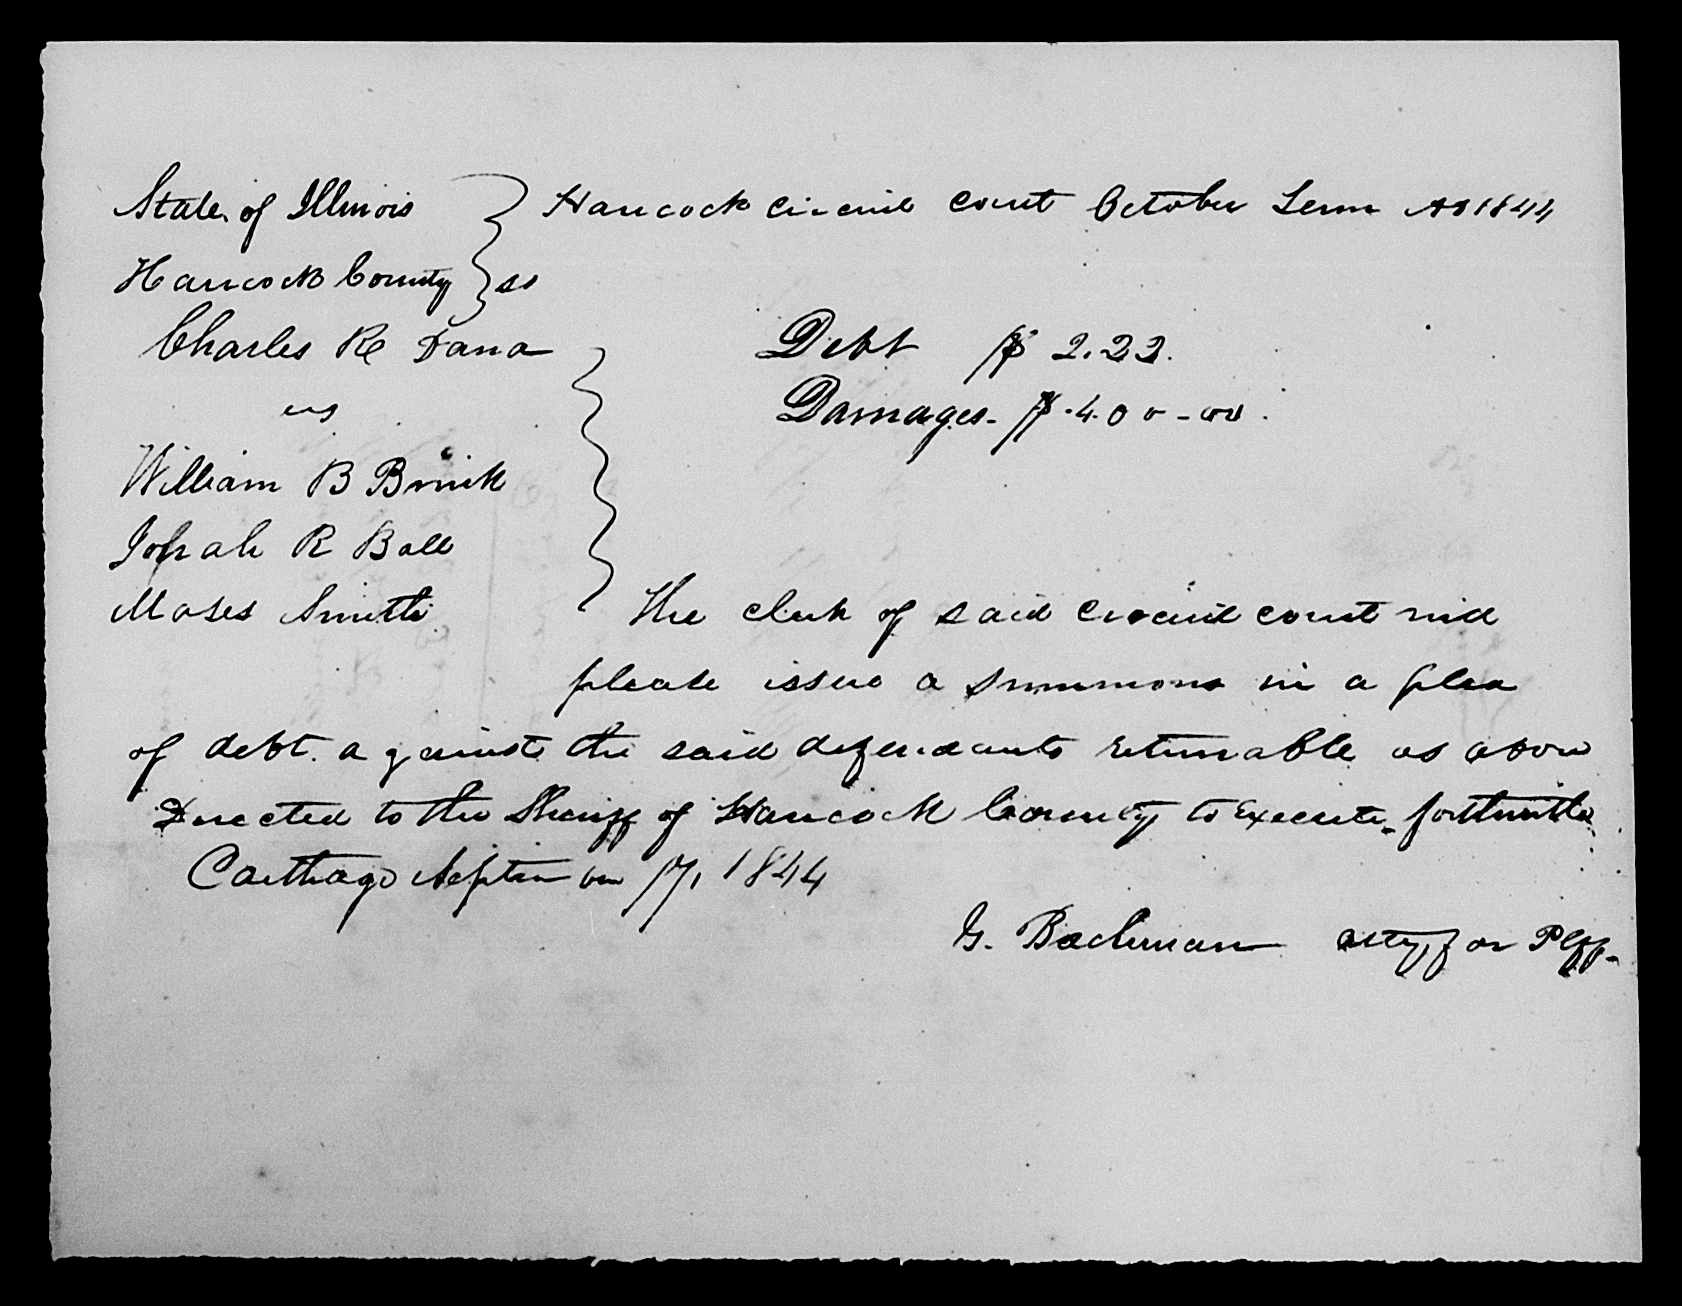 State of Illinois } Hancock Circuit Court October Term AD 1844
Hancock County } ss
Charles R Dana Debt $ 2.22.
vs Damages. $ 400-00.
William B Brink
Josiah R Ball
Moses Smith The clerk of said Circuit Court will
please issue a summons in a plea
of debt. against the said defendants returnable as above
Directed to the Sheriff of Hancock County to Execute forthwith
Carthage September 17, 1844
G. Bachman atty for Plff.